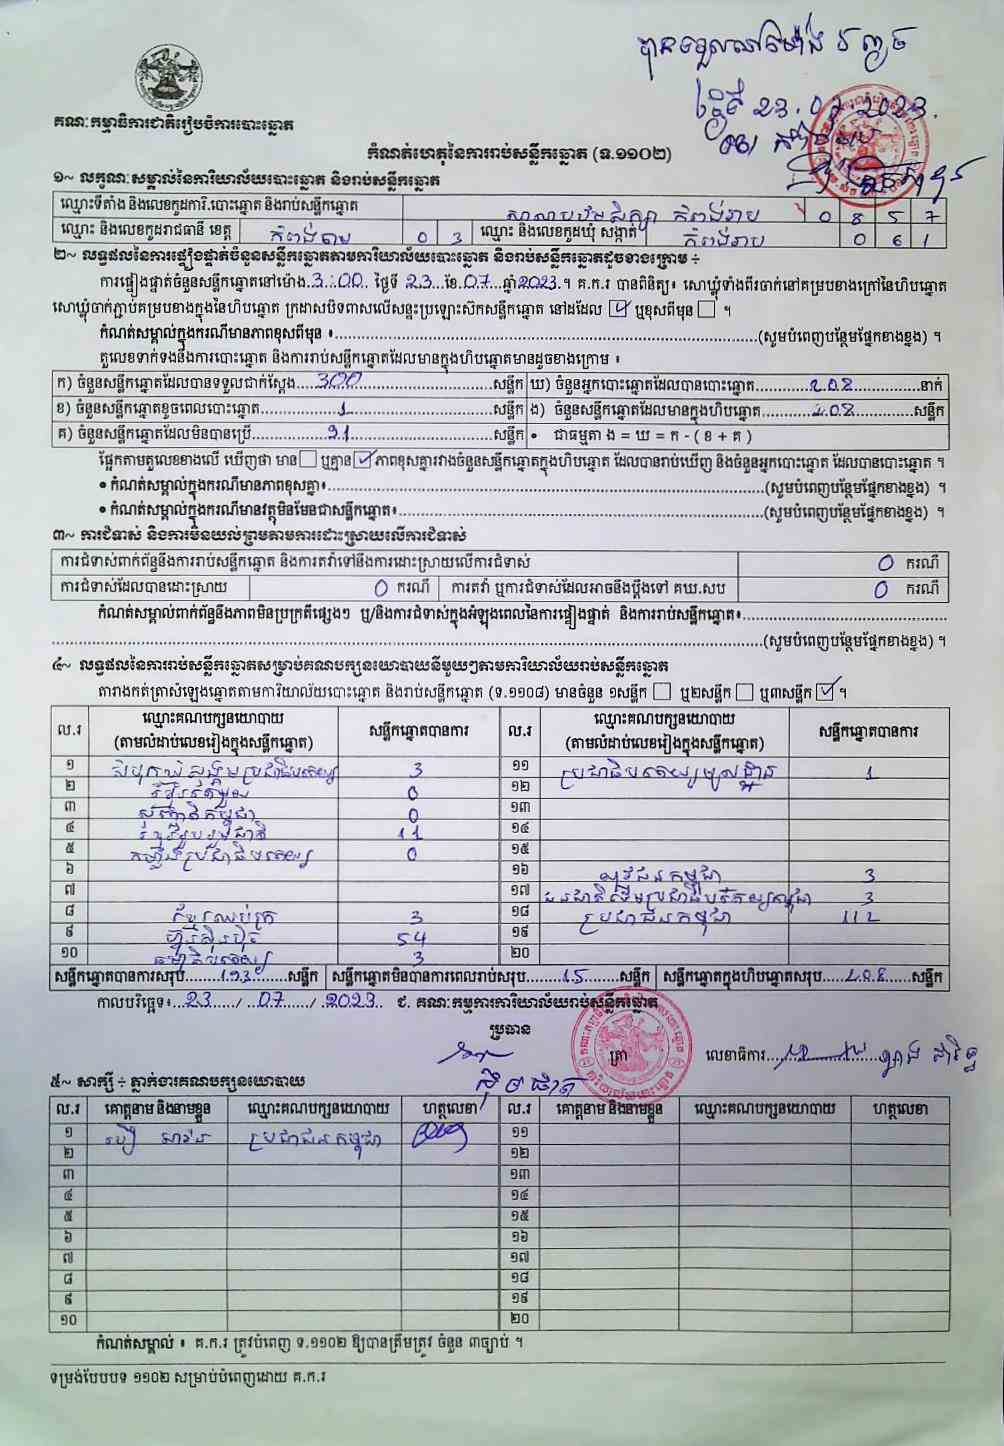 បានទទួលនៅម៉ោង
ថ្ងៃទី 23.07.2023.
គណៈកម្មាធិការជាតិរៀបចំការបោះឆ្នោត
កំណត់ហេតុនៃការរាប់សន្លឹកឆ្នោត (ទ.១១០២)
១~ លក្ខណៈសម្គាល់នៃការិយាល័យបោះឆ្នោត និងរាប់សន្លឹកឆ្នោត
ឈ្មោះទីតាំង និងលេខកូដការិ.បោះឆ្នោត និងរាប់សន្លឹកឆ្នោត សាលាបឋមសិក្សា កំពង់រាប 0 8 5 7
ឈ្មោះ និងលេខកូដរាជធានី ខេត្ត កំពង់ចាម 0 3 ឈ្មោះ និងលេខកូដឃុំ សង្កាត់ កំពង់រាប 0 6 1
២~ លទ្ធផលនៃការផ្ទៀងផ្ទាត់ចំនួនសន្លឹកឆ្នោតតាមការិយាល័យបោះឆ្នោត និងរាប់សន្លឹកឆ្នោតដូចខាងក្រោម ÷
ការផ្ទៀងផ្ទាត់ចំនួនសន្លឹកឆ្នោតនៅម៉ោង 3:00 ថ្ងៃទី 23 ខែ 07 ឆ្នាំ 2023 ។ គ.ក.រ បានពិនិត្យ៖ សោឃ្លុំទាំងពីរចាក់នៅគម្របខាងក្រៅនៃហិបឆ្នោត
សោឃ្លុំចាក់ភ្ជាប់គម្របខាងក្នុងនៃហិបឆ្នោត ក្រដាសបិទពាសលើសន្ទះប្រឡោះស៊កសន្លឹកឆ្នោត នៅដដែល ☑ ឬខុសពីមុន ☐ ។
កំណត់សម្គាល់ក្នុងករណីមានភាពខុសពីមុន ៖ (សូមបំពេញបន្ថែមផ្នែកខាងខ្នង) ។
តួលេខទាក់ទងនឹងការបោះឆ្នោត និងការរាប់សន្លឹកឆ្នោតដែលមានក្នុងហិបឆ្នោតមានដូចខាងក្រោម ៖
ក) ចំនួនសន្លឹកឆ្នោតដែលបានទទួលជាក់ស្តែង 300 សន្លឹក ឃ) ចំនួនអ្នកបោះឆ្នោតដែលបានបោះឆ្នោត 208 នាក់
ខ) ចំនួនសន្លឹកឆ្នោតខូចពេលបោះឆ្នោត 1 សន្លឹក ង) ចំនួនសន្លឹកឆ្នោតដែលមានក្នុងហិបឆ្នោត 208 សន្លឹក
គ) ចំនួនសន្លឹកឆ្នោតដែលមិនបានប្រើ 91 សន្លឹក • ជាធម្មតា ង = ឃ = ក - ( ខ + គ )
ផ្អែកតាមតួលេខខាងលើ ឃើញថា មាន ☐ ឬគ្មាន ☑ ភាពខុសគ្នារវាងចំនួនសន្លឹកឆ្នោតក្នុងហិបឆ្នោត ដែលបានរាប់ឃើញ និងចំនួនអ្នកបោះឆ្នោត ដែលបានបោះឆ្នោត ។
• កំណត់សម្គាល់ក្នុងករណីមានភាពខុសគ្នា៖ (សូមបំពេញបន្ថែមផ្នែកខាងខ្នង) ។
• កំណត់សម្គាល់ក្នុងករណីមានវត្ថុមិនមែនជាសន្លឹកឆ្នោត៖ (សូមបំពេញបន្ថែមផ្នែកខាងខ្នង) ។
៣~ ការជំទាស់ និងការមិនយល់ព្រមតាមការដោះស្រាយលើការជំទាស់
ការជំទាស់ពាក់ព័ន្ធនឹងការរាប់សន្លឹកឆ្នោត និងការតវ៉ាទៅនឹងការដោះស្រាយលើការជំទាស់ 0 ករណី
ការជំទាស់ដែលបានដោះស្រាយ 0 ករណី ការតវ៉ា ឬការជំទាស់ដែលអាចនឹងប្តឹងទៅ គឃ.សប 0 ករណី
កំណត់សម្គាល់ពាក់ព័ន្ធនឹងភាពមិនប្រក្រតីផ្សេងៗ ឬ/និងការជំទាស់ក្នុងអំឡុងពេលនៃការផ្ទៀងផ្ទាត់ និងការរាប់សន្លឹកឆ្នោត៖
(សូមបំពេញបន្ថែមផ្នែកខាងខ្នង) ។
៤~ លទ្ធផលនៃការរាប់សន្លឹកឆ្នោតសម្រាប់គណបក្សនយោបាយនីមួយៗតាមការិយាល័យរាប់សន្លឹកឆ្នោត
តារាងកត់ត្រាសំឡេងឆ្នោតតាមការិយាល័យបោះឆ្នោត និងរាប់សន្លឹកឆ្នោត (ទ.១១០៨) មានចំនួន ១សន្លឹក ☐ ឬ២សន្លឹក ☐ ឬ៣សន្លឹក ☑ ។
ល.រ ឈ្មោះគណបក្សនយោបាយ (តាមលំដាប់លេខរៀងក្នុងសន្លឹកឆ្នោត) សន្លឹកឆ្នោតបានការ ល.រ ឈ្មោះគណបក្សនយោបាយ (តាមលំដាប់លេខរៀងក្នុងសន្លឹកឆ្នោត) សន្លឹកឆ្នោតបានការ
១ សំបុកឃ្មុំសង្គមប្រជាធិបតេយ្យ 3 ១១ ប្រជាធិបតេយ្យមូលដ្ឋាន 1
២ ខ្មែររួបរួម 0 ១២
៣ សញ្ជាតិកម្ពុជា 0 ១៣
៤ ខ្មែររួបរួមជាតិ 11 ១៤
៥ កម្លាំងប្រជាធិបតេយ្យ 0 ១៥
៦ ១៦ យុវជនកម្ពុជា 3
៧ ១៧ ជនជាតិដើមប្រជាធិបតេយ្យកម្ពុជា 3
៨ ខ្មែរឈប់ក្រ 3 ១៨ ប្រជាជនកម្ពុជា 112
៩ ហ៊្វុនស៊ិនប៉ិច 54 ១៩
១០ ធម្មាធិបតេយ្យ 3 ២០
សន្លឹកឆ្នោតបានការសរុប 193 សន្លឹក សន្លឹកឆ្នោតមិនបានការពេលរាប់សរុប 15 សន្លឹក សន្លឹកឆ្នោតក្នុងហិបឆ្នោតសរុប 208 សន្លឹក
កាលបរិច្ឆេទ៖ 23 / 07 / 2023 ជ. គណៈកម្មការការិយាល័យរាប់សន្លឹកឆ្នោត
ប្រធាន
ត្រា លេខាធិការ
៥~ សាក្សី ÷ ភ្នាក់ងារគណបក្សនយោបាយ
ល.រ គោត្តនាម និងនាមខ្លួន ឈ្មោះគណបក្សនយោបាយ ហត្ថលេខា ល.រ គោត្តនាម និងនាមខ្លួន ឈ្មោះគណបក្សនយោបាយ ហត្ថលេខា
១ ប្រជាជនកម្ពុជា ១១
២ ១២
៣ ១៣
៤ ១៤
៥ ១៥
៦ ១៦
៧ ១៧
៨ ១៨
៩ ១៩
១០ ២០
កំណត់សម្គាល់ ៖ គ.ក.រ ត្រូវបំពេញ ទ.១១០២ ឱ្យបានត្រឹមត្រូវ ចំនួន ៣ច្បាប់ ។
ទម្រង់បែបបទ ១១០២ សម្រាប់បំពេញដោយ គ.ក.រ